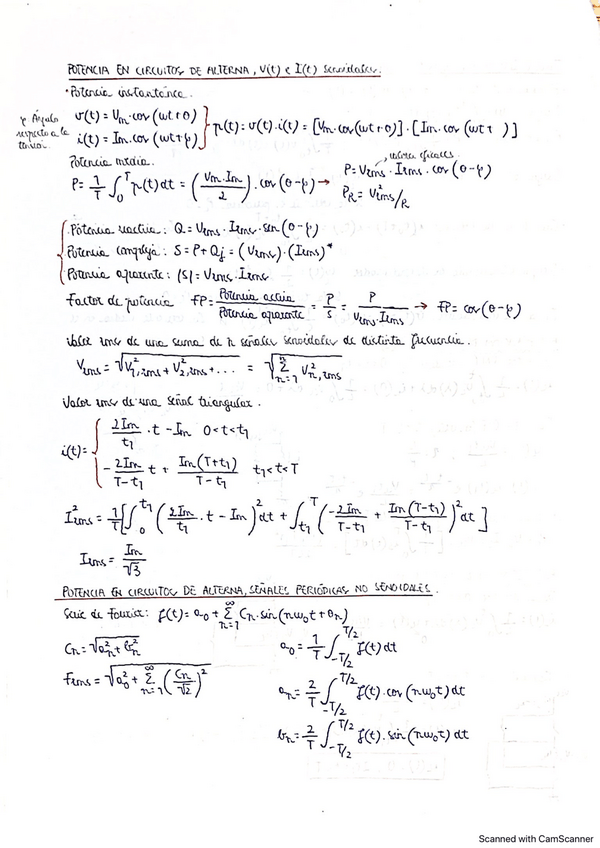 POTENCIA EN CIRCUITOS DE ALTERNA, V(t) e I(t) senoidales.
· Potencia instantánea.
φ: Ángulo respecto a la tensión.
v(t) = Vm·cos(ωt+θ)
i(t) = Im·cos(ωt+φ)
p(t) = v(t)·i(t) = [Vm·cos(ωt+θ)]·[Im·cos(ωt+ )]
Potencia media.
valores eficaces.
P = 1/T ∫₀ᵀ p(t)dt = (Vm·Im/2)·cos(θ-φ) → P = Vrms·Irms·cos(θ-φ)
P_R = V²rms/R
Potencia reactiva: Q = Vrms·Irms·sen(θ-φ)
Potencia compleja: S = P+Qj = (Vrms)·(Irms)*
Potencia aparente: |S| = Vrms·Irms
Factor de potencia FP = Potencia activa/Potencia aparente = P/S = P/(Vrms·Irms) → FP = cos(θ-φ)
Valor rms de una suma de n señales senoidales de distinta frecuencia.
Vrms = √(V²1,rms + V²2,rms + ...) = √(Σⁿₙ₌₁ V²n,rms)
Valor rms de una señal triangular.
i(t) = { 2Im/t₁ · t - Im 0<t<t₁
-2Im/(T-t₁) t + Im(T+t₁)/(T-t₁) t₁<t<T
I²rms = 1/T [∫₀^t₁ (2Im/t₁ · t - Im)² dt + ∫t₁^T (-2Im/(T-t₁) + Im(T-t₁)/(T-t₁))² dt]
Irms = Im/√3
POTENCIA EN CIRCUITOS DE ALTERNA, SEÑALES PERIÓDICAS NO SENOIDALES.
Serie de Fourier: f(t) = a₀ + Σ^∞ₙ₌₁ Cn·sin(nω₀t+θn)
Cn = √(a²n + b²n)
a₀ = 1/T ∫₋T/2^T/2 f(t) dt
Frms = √(a₀² + Σ^∞ₙ₌₁ (Cn/√2)²)
an = 2/T ∫₋T/2^T/2 f(t)·cos(nω₀t) dt
bn = 2/T ∫₋T/2^T/2 f(t)·sin(nω₀t) dt
Scanned with CamScanner